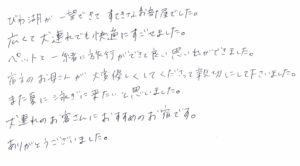 びわ湖が一望できてすてきなお部屋でした。
広くて犬連れでも快適にすごせました。
ペットと一緒に旅行ができて良い思い出ができました。
宿主のお母さんが大変優しくしてくださって親切にして下さいました。
また夏に泳ぎに来たいと思いました。
犬連れのお客さんにおすすめのお宿です。
ありがとうございました。